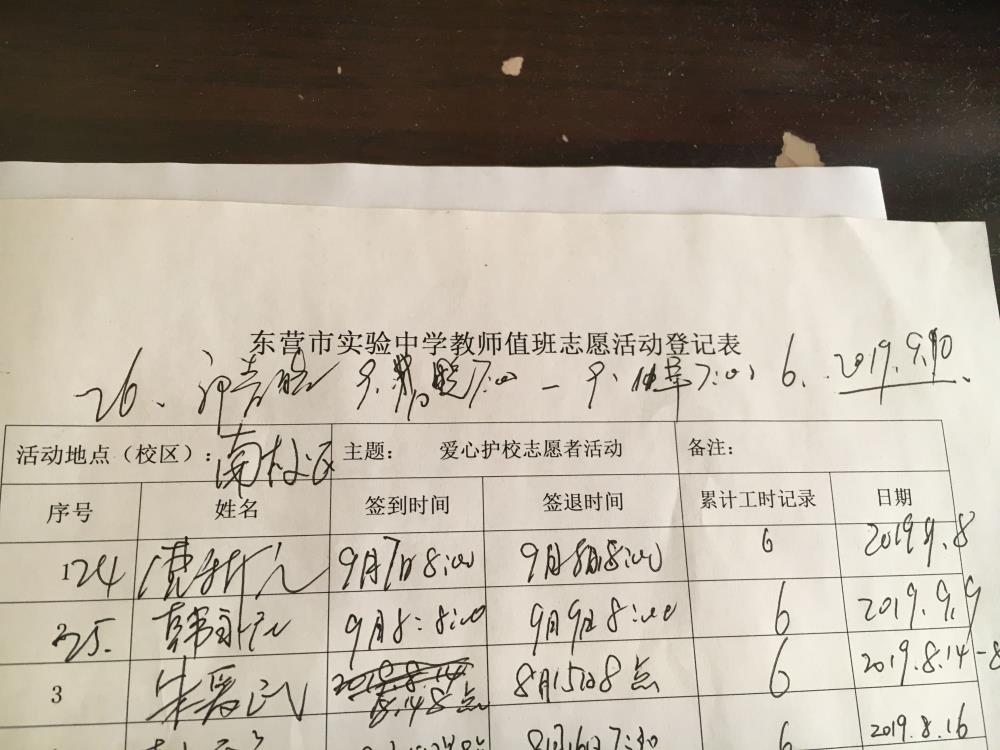 东营市实验中学教师值班志愿活动登记表
26、 7:00 — 7:00 6. 2019.9.10.
活动地点（校区）：南校区 主题： 爱心护校志愿者活动 备注：
序号 姓名 签到时间 签退时间 累计工时记录 日期
124 9月7日8:00 9月8日8:00 6 2019.9.8
25. 韩 9月8: 8:00 9月9日8:00 6 2019.9.9
3 宋晋武 8.14 8点 8月15日8点 6 2019.8.14-8
8月16日7:30 6 2019.8.16